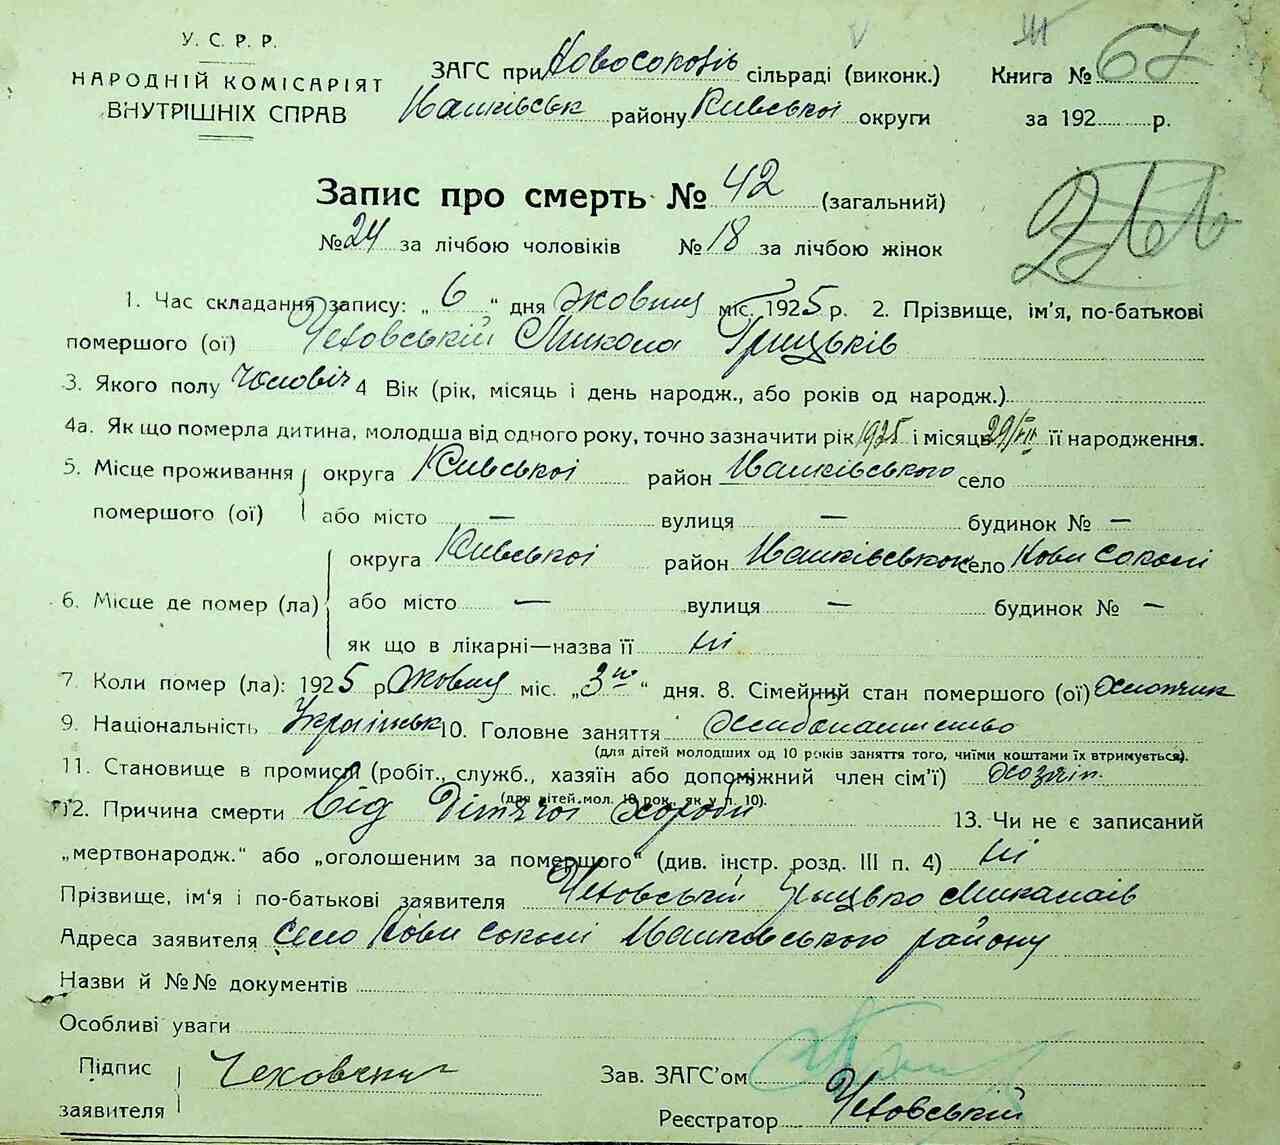 У. С. Р. Р.
НАРОДНІЙ КОМІСАРІЯТ
ВНУТРІШНІХ СПРАВ
ЗАГС при Новосоколів сільраді (виконк.)
району Київської округи
Книга № 67
за 192 р.
Запис про смерть № 42 (загальний)
№ 24 за лічбою чоловіків № 18 за лічбою жінок
1. Час складання запису: „6“ дня жовтня міс. 1925 р. 2. Прізвище, ім'я, по-батькові
помершого (ої) Чеховській Микола Грицьків
3. Якого полу Чоловіч 4 Вік (рік, місяць і день народж., або років од народж.)
4а. Як що померла дитина, молодша від одного року, точно зазначити рік 1925 і місяць 29/VII її народження.
5. Місце проживання округа Київської район Івашківського село
помершого (ої) або місто — вулиця — будинок № —
округа Київської район Івашківського село Нови Соколі
6. Місце де помер (ла) або місто — вулиця — будинок № —
як що в лікарні—назва її ні
7. Коли помер (ла): 1925 р. жовтня міс. „3го“ дня. 8. Сімейний стан помершого (ої) Хлопчик
9. Національність Українськ 10. Головне заняття Хлибопашество
(для дітей молодших од 10 років заняття того, чиїми коштами їх втримується).
11. Становище в промислі (робіт., служб., хазяїн або допоміжний член сім'ї) хозяїн.
(для дітей мол. 10 рок., як у п. 10).
12. Причина смерти Від Дітячої Хороби 13. Чи не є записаний
„мертвонародж.“ або „оголошеним за помершого“ (див. інстр. розд. III п. 4) ні
Прізвище, ім'я і по-батькові заявителя Чеховській Грицько Миколаів
Адреса заявителя Село Нови Соколі Івашковського району
Назви й №№ документів
Особливі уваги
Підпис
заявителя
Зав. ЗАГС'ом
Реєстратор Чеховській